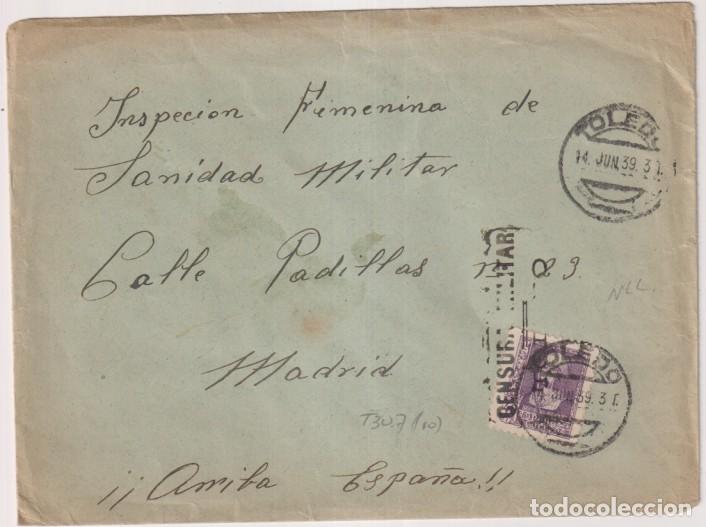 Inspecion Femenina de
Sanidad Militar
Calle Padillas nº 29.
Madrid
¡¡Arriba España!!
TOLEDO
14. JUN.39. 3 T.
CENSURA MILITAR
TOLEDO
TOLEDO
JUN.39. 3 T.
T30.7 (10)
todocoleccion